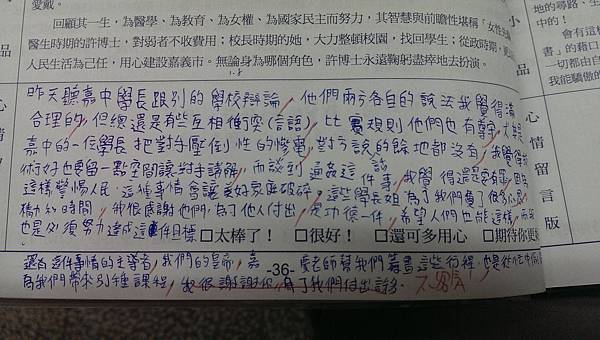 愛戴。
回顧其一生，為醫學、為教育、為女權、為國家民主而努力，其智慧與前瞻性堪稱「女性
醫生時期的許博士，對弱者不收費用；校長時期的她，大力整頓校園，找回學生；從政時期，
人民生活為己任，用心建設嘉義市。無論身為哪個角色，許博士永遠鞠躬盡瘁地去扮演。
小
品
地的尋路、生
中的！
會有這
書」的藉口
一切都由自
我能驕傲的
昨天聽嘉中學長跟別的學校辯論，他們兩方各自的說法我覺得滿
合理的，但總還是有些互相衝突(言語)，比賽規則他們也有尊守，尤其是
嘉中的一位學長把對手壓倒性的慘電，對方說的餘地都沒有，我覺得
術好也要留一點空間讓對手講解，而談到酒駕這件事，我覺得還是要有
這樣警惕人民，這種事情會讓美好家庭破碎，這些學長姐為了我們費了很多心思
和時間，我很感謝他們，為了他人付出，是功德一件，希望人們也能這樣，而我
也是必須努力達成這件目標
□太棒了！ □很好！ □還可多用心 □期待你更
還有這件事情的主導者，我們的皇帝，嘉
慶老師幫我們籌畫這些行程，也是從忙中
為我們帶來別種課程，我很謝謝你為了我們付出許多。
-36-
心情留言版
品